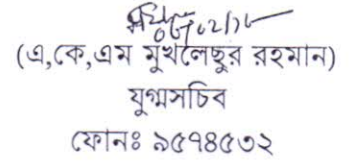 (এ,কে,এম মুখলেছুর রহমান)
যুগ্মসচিব
ফোনঃ ৯৫৭৪৫৩২